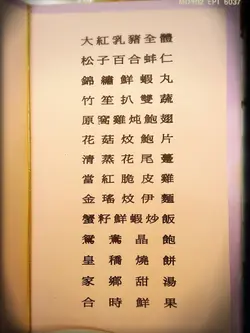 大紅乳豬全體
松子百合蚌仁
錦繡鮮蝦丸
竹笙扒雙蔬
原窩雞炖鮑翅
花菇炆鮑片
清蒸花尾躉
當紅脆皮雞
金瑤炆伊麵
蟹籽鮮蝦炒飯
鴛鴦晶飽
皇橋燒餅
家鄉甜湯
合時鮮果